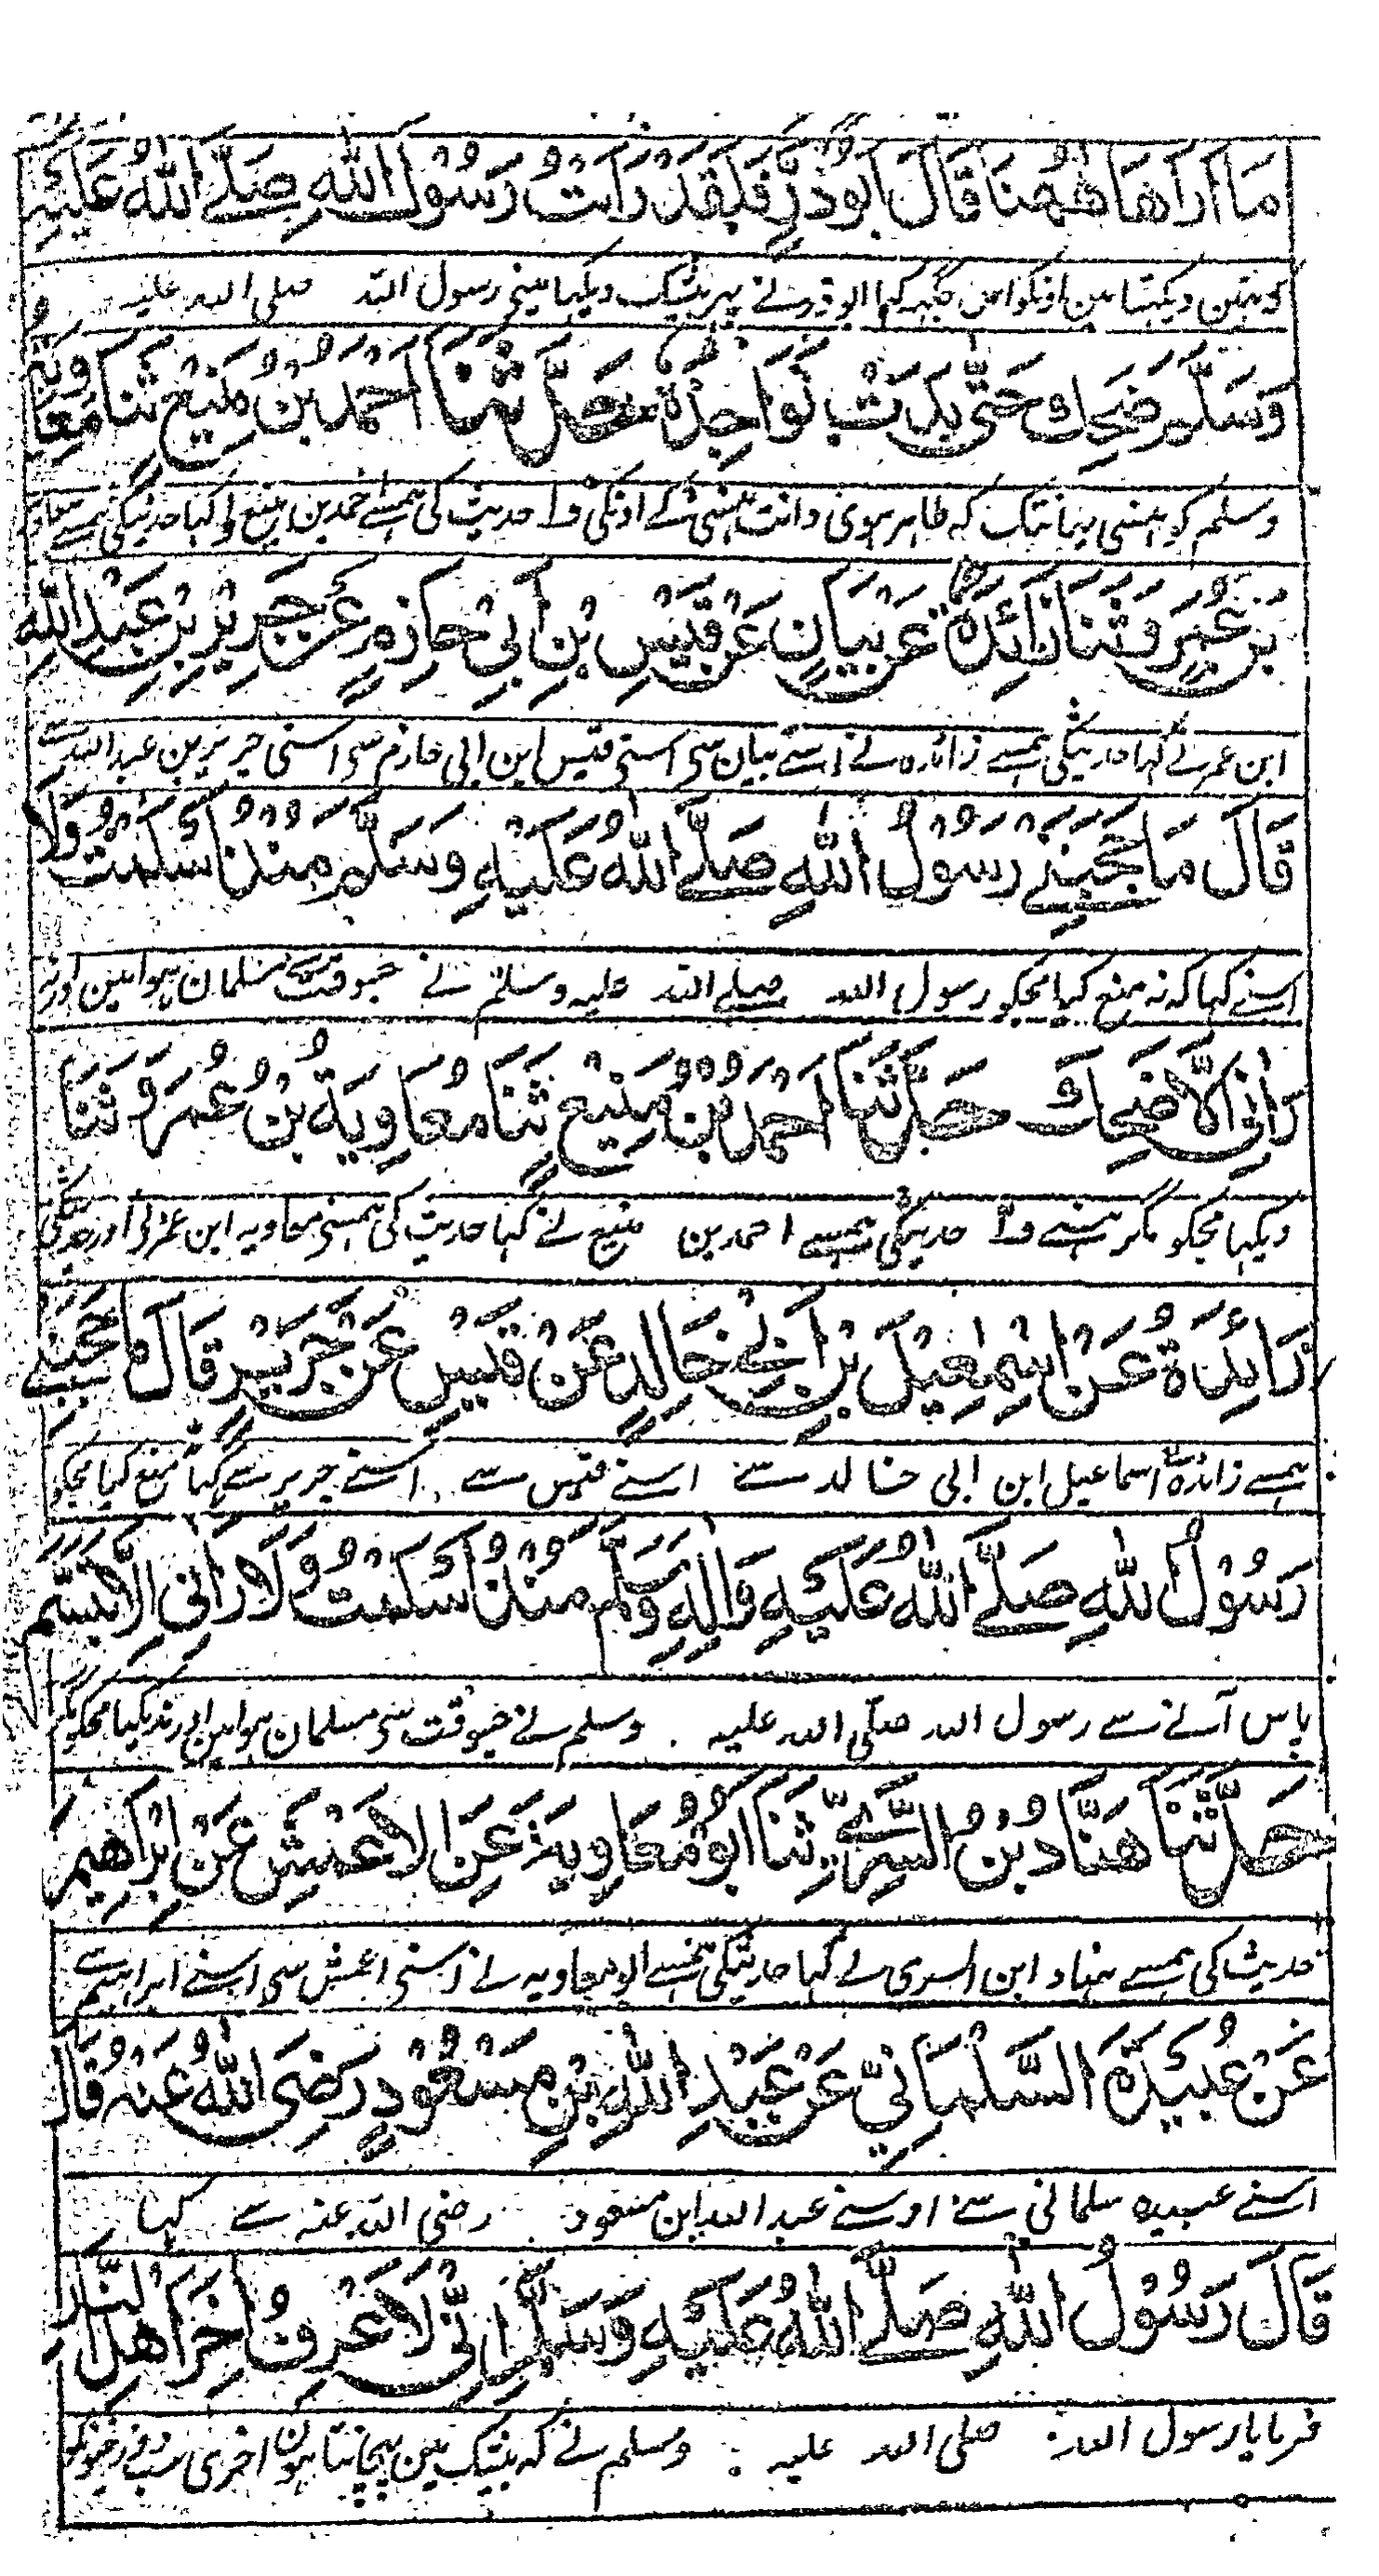 مَا اَرَاهَا هٰهُنَا قَالَ اَبُوْذَرٍّ فَلَقَدْ رَاَيْتُ رَسُوْلَ اللهِ صَلَّے اللهُ عَلَيْهِ
دیکہتا مین اونکو اس جگہہ کہا ابوذر نے پر بیشک دیکہا مینی رسول اللہ صلی اللہ علیہ
وَسَلَّمَ ضَحِكَ حَتّٰى بَدَتْ نَوَاجِذُهٗ حَدَّثَنَا اَحْمَدُ بْنُ مَنِيْعٍ ثَنَا مُعَاوِيَةُ
وسلم کو ہنسی یہانتک کہ ظاہر ہوی دانت ہنسی کے اونکی ف حدیث کی ہمسے احمد بن منیع نے کہا حدیثکی ہمسے معاویہ
بْنُ عُمَرَ وَثَنَا زَائِدَةُ عَنْ بَيَانٍ عَنْ قَيْسِ بْنِ اَبِىْ حَازِمٍ عَنْ جَرِيْرِ بْنِ عَبْدِ اللهِ
ابن عمر نے کہا حدیثکی ہمسے زائدہ نے اسنے بیان سی اسنی قیس ابن ابی حازم سی اسنی جریر بن عبد اللہ سے
قَالَ مَا حَجَبَنِے رَسُوْلُ اللهِ صَلَّے اللهُ عَلَيْهِ وَسَلَّمَ مُنْذُ اَسْلَمْتُ وَلَا
اسنے کہا کہ نہ منع کیا مجکو رسول اللہ صلے اللہ علیہ وسلم نے جبوقت سے مسلمان ہوا مین اور نہ
رَاٰنِىْ اِلَّا ضَحِكَ حَدَّثَنَا اَحْمَدُ بْنُ مَنِيْعٍ ثَنَا مُعَاوِيَةُ بْنُ عُمَرَ وَ ثَنَا
دیکہا مجکو مگر ہنسے ف حدیثکی ہمسے احمد بن منیع نے کہا حدیث کی ہمسے معاویہ ابن عمر نے اور حدیثکی
زَائِدَةُ عَنْ اِسْمٰعِيْلَ بْنِ اَبِىْ خَالِدٍ عَنْ قَيْسٍ عَنْ جَرِيْرٍ قَالَ مَا حَجَبَنِے
ہمسے زائدہ اسماعیل ابن ابی خالد سے اسنے قیس سے اسنے جریر سے کہا نہ منع کیا مجکو
رَسُوْلُ اللهِ صَلَّے اللهُ عَلَيْهِ وَاٰلِهٖ وَسَلَّمَ مُنْذُ اَسْلَمْتُ وَلَا رَاٰنِى اِلَّا تَبَسَّمَ
پاس آنے سے رسول اللہ صلی اللہ علیہ وسلم نے جبوقت سی مسلمان ہوا مین اور نہ دیکہا مجکو مگر
حَدَّثَنَا هَنَّادُ بْنُ السَّرِيِّ ثَنَا اَبُوْ مُعَاوِيَةَ عَنِ الْاَعْمَشِ عَنْ اِبْرَاهِيْمَ
حدیث کی ہمسے ہناد ابن السری نے کہا حدیثکی ہمسے ابو معاویہ نے اسنی اعمش سی اسنے ابراہیم سے
عَنْ عُبَيْدَةَ السَّلْمَانِيِّ عَنْ عَبْدِ اللهِ بْنِ مَسْعُوْدٍ رَضِىَ اللهُ عَنْهُ قَالَ
اسنے عبیدہ سلمانی سے اوسنے عبد اللہ ابن مسعود رضی اللہ عنہ سے کہا
قَالَ رَسُوْلُ اللهِ صَلَّے اللهُ عَلَيْهِ وَسَلَّمَ اِنِّىْ لَاَعْرِفُ اٰخِرَ اَهْلِ النَّارِ
فرمایا رسول اللہ صلی اللہ علیہ وسلم نے کہ بیشک مین پہچانتا ہون اخری سب دوزخیونکو